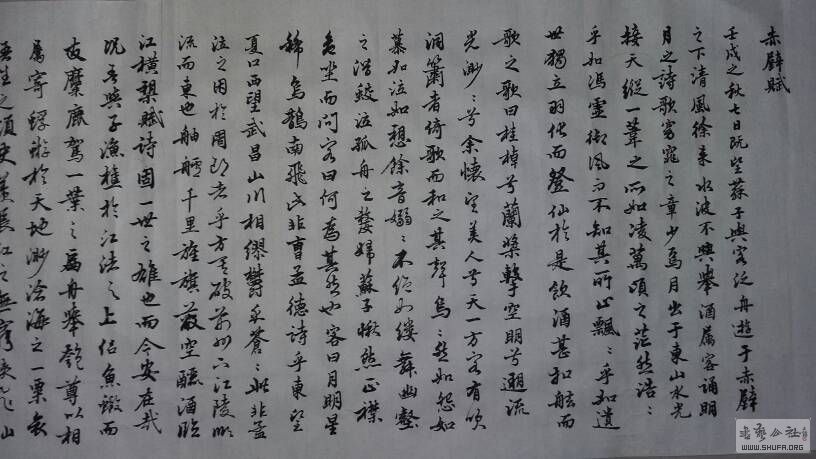 赤壁賦
壬戌之秋七月既望蘇子與客泛舟遊于赤壁
之下清風徐来水波不興舉酒属客誦明
月之詩歌窈窕之章少焉月出于東山水光
接天縱一葦之所如凌萬頃之茫然浩々
乎如馮虛御風而不知其所止飄々乎如遺
世獨立羽化而登仙於是飲酒甚扣舷而
歌之歌曰桂棹兮蘭槳擊空明兮溯流
光渺々兮余懷望美人兮天一方客有吹
洞簫者倚歌而和之其聲嗚々然如怨如
慕如泣如愬餘音嫋々不絕如縷舞幽壑
之潛蛟泣孤舟之嫠婦蘇子愀然正襟
危坐而問客曰何為其然也客曰月明星
稀烏鵲南飛此非曹孟德詩乎東望
夏口西望武昌山川相繆鬱乎蒼々此非孟
德之困於周郎者乎方其破荊州下江陵順
流而東也舳艫千里旌旗蔽空釃酒臨
江橫槊賦詩固一世之雄也而今安在哉
况吾與子漁樵於江渚之上侶魚蝦而
友麋鹿駕一葉之扁舟舉匏尊以相
属寄蜉蝣於天地渺滄海之一粟哀
吾生之須臾羨長江之無窮挾飛
书艺公社
WWW.SHUFA.ORG